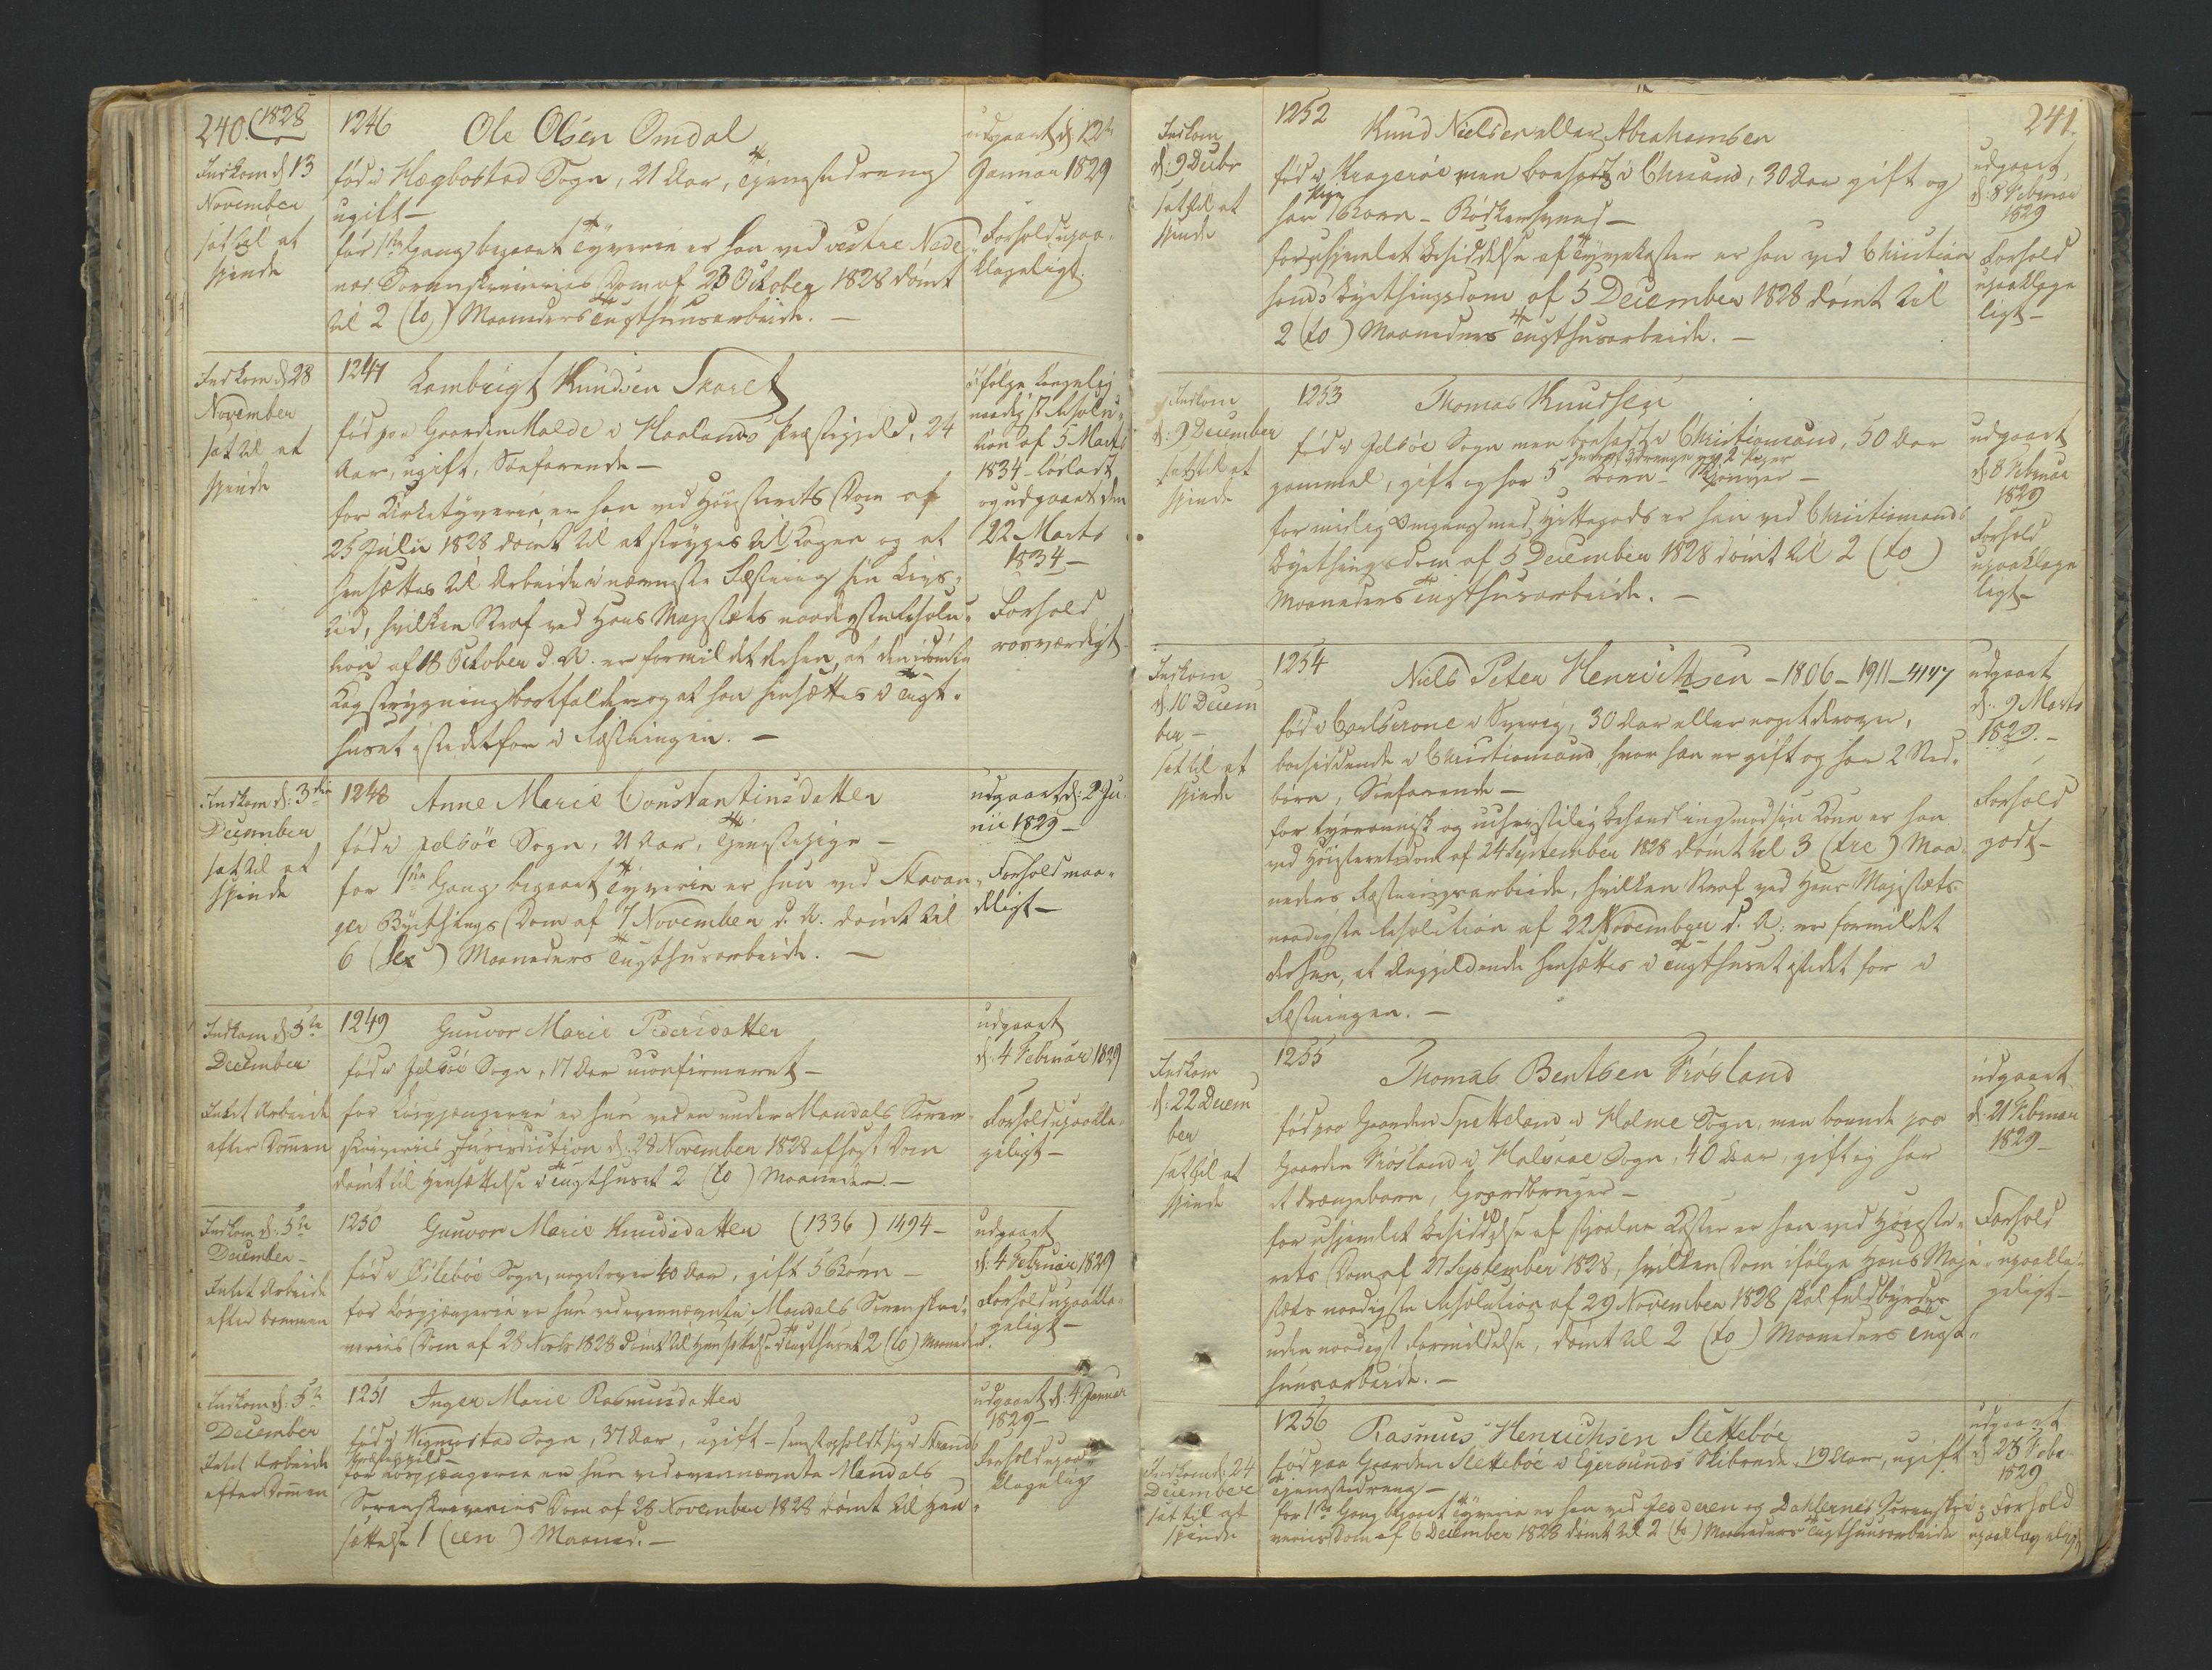 240. (1828
Indkom d 13
November
sat til at
spinde
1246
Ole Olsen Omdal
fød i Hægbostad Sogn, 21 Aar, Tjenestedreng
ugift —
for 1ste Gang begaaet Tyverie er han ved vestre Nede-
næs Sorenskriveries Dom af 23 October 1828 dømt
til 2 (to) Maaneders Tugthuusarbeide. —
udgaaet d 12te
Januar 1829
Forhold upaa-
klageligt.
Indkom d 28
November
sat til at
spinde
1247
Lambrigt Knudsen Skaret
fød paa Gaarden Malde i Haalands Præstegjeld, 24
Aar, ugift, Søefarende —
for Kirketyverie, er han ved Høiesterets Dom af
25 Julii 1828 dømt til at stryges til Kagen og at
hensættes til Arbeide i nærmeste Fæstning sin Livs-
tid, hvilken Straf ved Hans Majestæts naadigste Resolu-
tion af 18 October d. A. er formildet derhen, at den idømte
Kagstrygning bortfalder og at han hensættes i Tugt-
huset istedetfor i Fæstningen. —
ifølge Kongelig
naadigst Resolu-
tion af 5 Marts
1834 løsladt
og udgaaet den
22 Marts
1834 —
Forhold
rosværdigt
Indkom d: 3die
December
sat til at
spinde
1248
Anne Marie Constantinsdatter
fød i Jelsöe Sogn, 21 Aar, Tjenestepige —
for 1ste Gang begaaet Tyverie er hun ved Stavan-
ger Byethings Dom af 7 November d. A. dømt til
6 (sex) Maaneders Tugthusarbeide. —
udgaaet d: 2 Ju-
nii 1829 —
Forhold maa-
deligt —
Indkom d: 5te
December
Intet Arbeide
efter Dommen
1249
Gunvor Marie Pedersdatter
fød i Jelsöe Sogn, 17 Aar uconfirmeret —
for Løsgjængerie er hun ved en under Mandals Soren-
skriveries Jurisdiction d. 28 November 1828 afsagt Dom
dømt til Hensættelse i Tugthuset 2 (to) Maaneder. —
udgaaet
d: 4 Februar 1829
Forhold upaakla-
geligt —
Indkom d: 5te
December —
Intet Arbeide
efter Dommen
1250
Gunvor Marie Knudsdatter (1336) 1494 —
fød i Øslebøe Sogn, noget over 40 Aar, gift 5 Børn —
for Løsgjængerie er hun ved ovennævnte Mandals Sorenskri-
veries Dom af 28 Novbr 1828 dømt til Hensættelse i Tugthuset 2 (to) Maaneder.
udgaaet
d: 4 Februar 1829
Forhold upaakla-
geligt —
Indkom d: 5te
December
Intet Arbeide
efter Dommen
1251
Inger Marie Rasmusdatter
fød i Wigmostad Sogn, 37 Aar, ugift — senest opholdt sig i Strands
Præstegjeld —
for Løsgjængerie er hun ved ovennævnte Mandals
Sorenskriveries Dom af 28 November 1828 dømt til Hen-
sættelse 1 (een) Maaned. —
udgaaet d: 4 Januar
1829 —
Forhold upaa-
klagelig
241.
Indkom
d: 9 Decbr
sat til at
spinde
1252
Knud Nielsen eller Abrahamsen
fød i Kragerøe men boesat i Chrsand, 30 Aar gift og
har 1 Barn — Bødkersvend —
for uhjemlet Besiddelse af Tyvekoster er han ved Christian
sands Byethingsdom af 5 December 1828 dømt til
2 (to) Maaneders Tugthusarbeide. —
udgaaet
d: 8 Februar
1829
Forhold
upaaklage
ligt —
Indkom
d: 9 December
sat til at
spinde
1253
Thomas Knudsen
fød i Jelsöe Sogn men boesat i Christiansand, 50 Aar
hvoraf 3 Drenge og 2 Piger
gammel, gift og har 5 Børn —
for ulovlig Omgang med Hittegods er han ved Christiansands
Byethingsdom af 5 December 1828 dømt til 2 (to)
Maaneders Tugthusarbeide. —
udgaaet
d 8 Februar
1829
Forhold
upaaklage
ligt —
Indkom
d. 10 Decem
ber —
sat til at
spinde
1254
Niels Peter Henrichsen — 1806 — 1911 — 4147
fød i Carlscrone i Sverrig, 30 Aar eller noget derover,
boesiddende i Christiansand, hvor han er gift og har 2 Sted-
børn, Søefarende —
for tyrannisk og uchristelig Behandling mod sin Kone er han
ved Høiesterets Dom af 24 September 1828 dømt til 3 (tre) Maa-
neders Fæstningsarbeide, hvilken Straf ved Hans Majestæts
naadigste Resolution af 22 November d. A: er formildet
derhen, at Angjeldende hensættes i Tugthuset istedet for i
Fæstningen. —
udgaaet
d: 9 Marts
1829. —
Forhold
godt —
Indkom
d: 22 Decem
ber
sat til at
spinde
1255
Thomas Bentsen Fiósland
fød paa Gaarden Spetteland i Holme Sogn, men boende paa
Gaarden Fiósland i Halsaae Sogn, 40 Aar, gift og har
et Drengebarn, Gaardbruger —
for uhjemlet Besiddelse af stjaalne Koster er han ved Høieste-
rets Dom af 27 September 1828, hvilken Dom ifølge Hans Maje-
stæts naadigste Resolution af 29 November 1828 skal fuldbyrdes
uden naadigst Formildelse, dømt til 2 (to) Maaneders Tugt-
huusarbeide. —
udgaaet
d: 21 Februar
1829 —
Forhold
upaakla-
geligt —
Indkom d: 24
December
sat til at
spinde
1256
Rasmus Henrichsen Slettebøe
fød paa Gaarden Slettebøe i Egersunds Skibrede 19 Aar, ugift
Tjenestedreng —
for 1ste Gang begaaet Tyverie er han ved Jedderen og Dahlernes Sorenskri-
veries Dom af 6 December 1828 dømt til 2 (to) Maaneders Tugthuusarbeide
udgaaet
d 23 Febr.
1829
Forhold
upaaklageligt